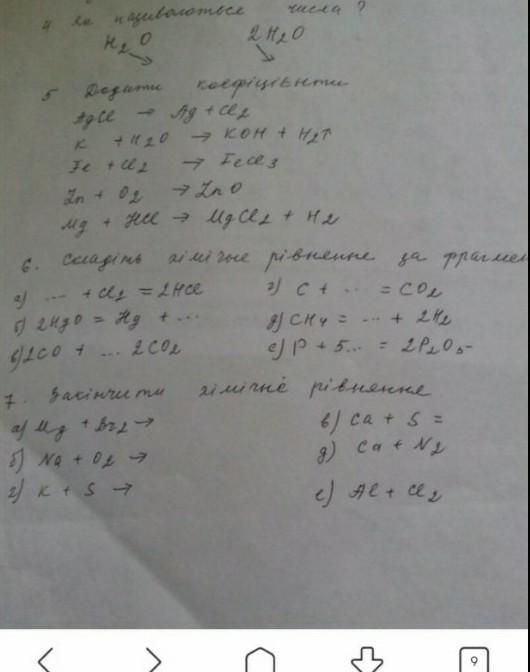 4 Як називаються числа?
H₂O 2H₂O
5 Додати коефіцієнти
AgCl → Ag + Cl₂
K + H₂O → KOH + H₂↑
Fe + Cl₂ → FeCl₃
Zn + O₂ → ZnO
Mg + HCl → MgCl₂ + H₂
6. Складіть хімічне рівненне за фрагмен
а) ... + Cl₂ = 2HCl г) C + ... = CO₂
б) 2HgO = Hg + ... д) CH₄ = ... + 2H₂
в) 2CO + ... 2CO₂ е) P + 5... = 2P₂O₅
7. Закінчити хімічне рівнення
а) Mg + Br₂ → в) Ca + S =
б) Na + O₂ → д) Ca + N₂
г) K + S → е) Al + Cl₂
9